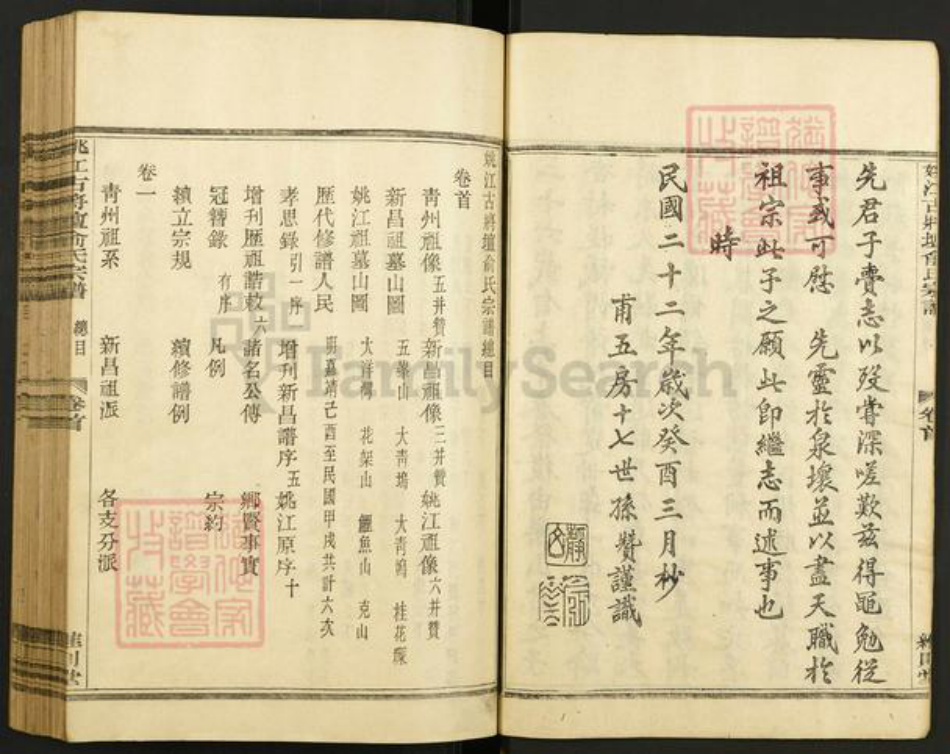 先君子賫志以歿嘗深嗟歎茲得黽勉從
事或可慰 先靈於泉壤並以盡天職於
祖宗此子之願此即繼志而述事也
時
民國二十二年歲次癸酉三月杪
甫五房十七世孫贊謹識
姚江古將壇俞氏宗譜總目
卷首
青州祖像五并贊 新昌祖像三并贊 姚江祖像六并贊
新昌祖墓山圖 五峯山 大青塢 大青塢 桂花
姚江祖墓山圖 大祥 花架山 鯉魚山 克山
歷代修譜人民 明嘉靖己酉至民國甲戌共計六次
孝思錄引一序 增刊新昌譜序五 姚江原序十
增刊歷祖誥敕六 諸名公傳 鄉賢事實
冠簪錄有序 凡例 宗約
續立宗規 續修譜例
卷一
青州祖系 新昌祖派 各支分派
姚江古將壇俞氏宗譜 總目 卷首
卷首
FamilySearch